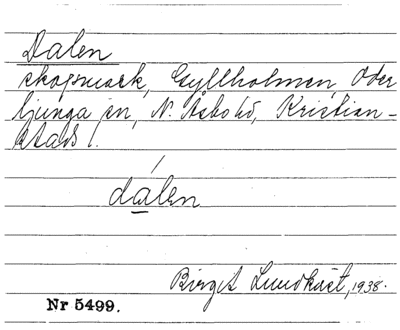 Dalen
skogsmark, Gyllholmen, Oder
ljunga sn, N. Åsbo hd, Kristian-
stads l.
dálen
Birgit Lundkvist, 1938.
Nr 5499.